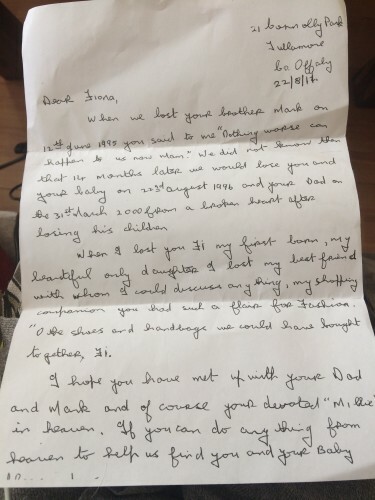 21 Connolly Park
Tullamore
Co Offaly
22/8/17
Dear Fiona,
When we lost your brother Mark on
12th June 1995 you said to me "Nothing worse can
happen to us now Mam." We did not know then
that 14 months later we would lose you and
your baby on 22nd August 1996 and your Dad on
the 31st March 2000 from a broken heart after
losing his children
When I lost you Fi my first born, my
beautiful only daughter I lost my best friend
with whom I could discuss anything, my shopping
companion you had such a flair for Fashion.
"O the shoes and handbags we could have bought
together, Fi.
I hope you have met up with your Dad
and Mark and of course your devoted "Millie"
in heaven. If you can do any thing from
heaven to help us find you and your Baby